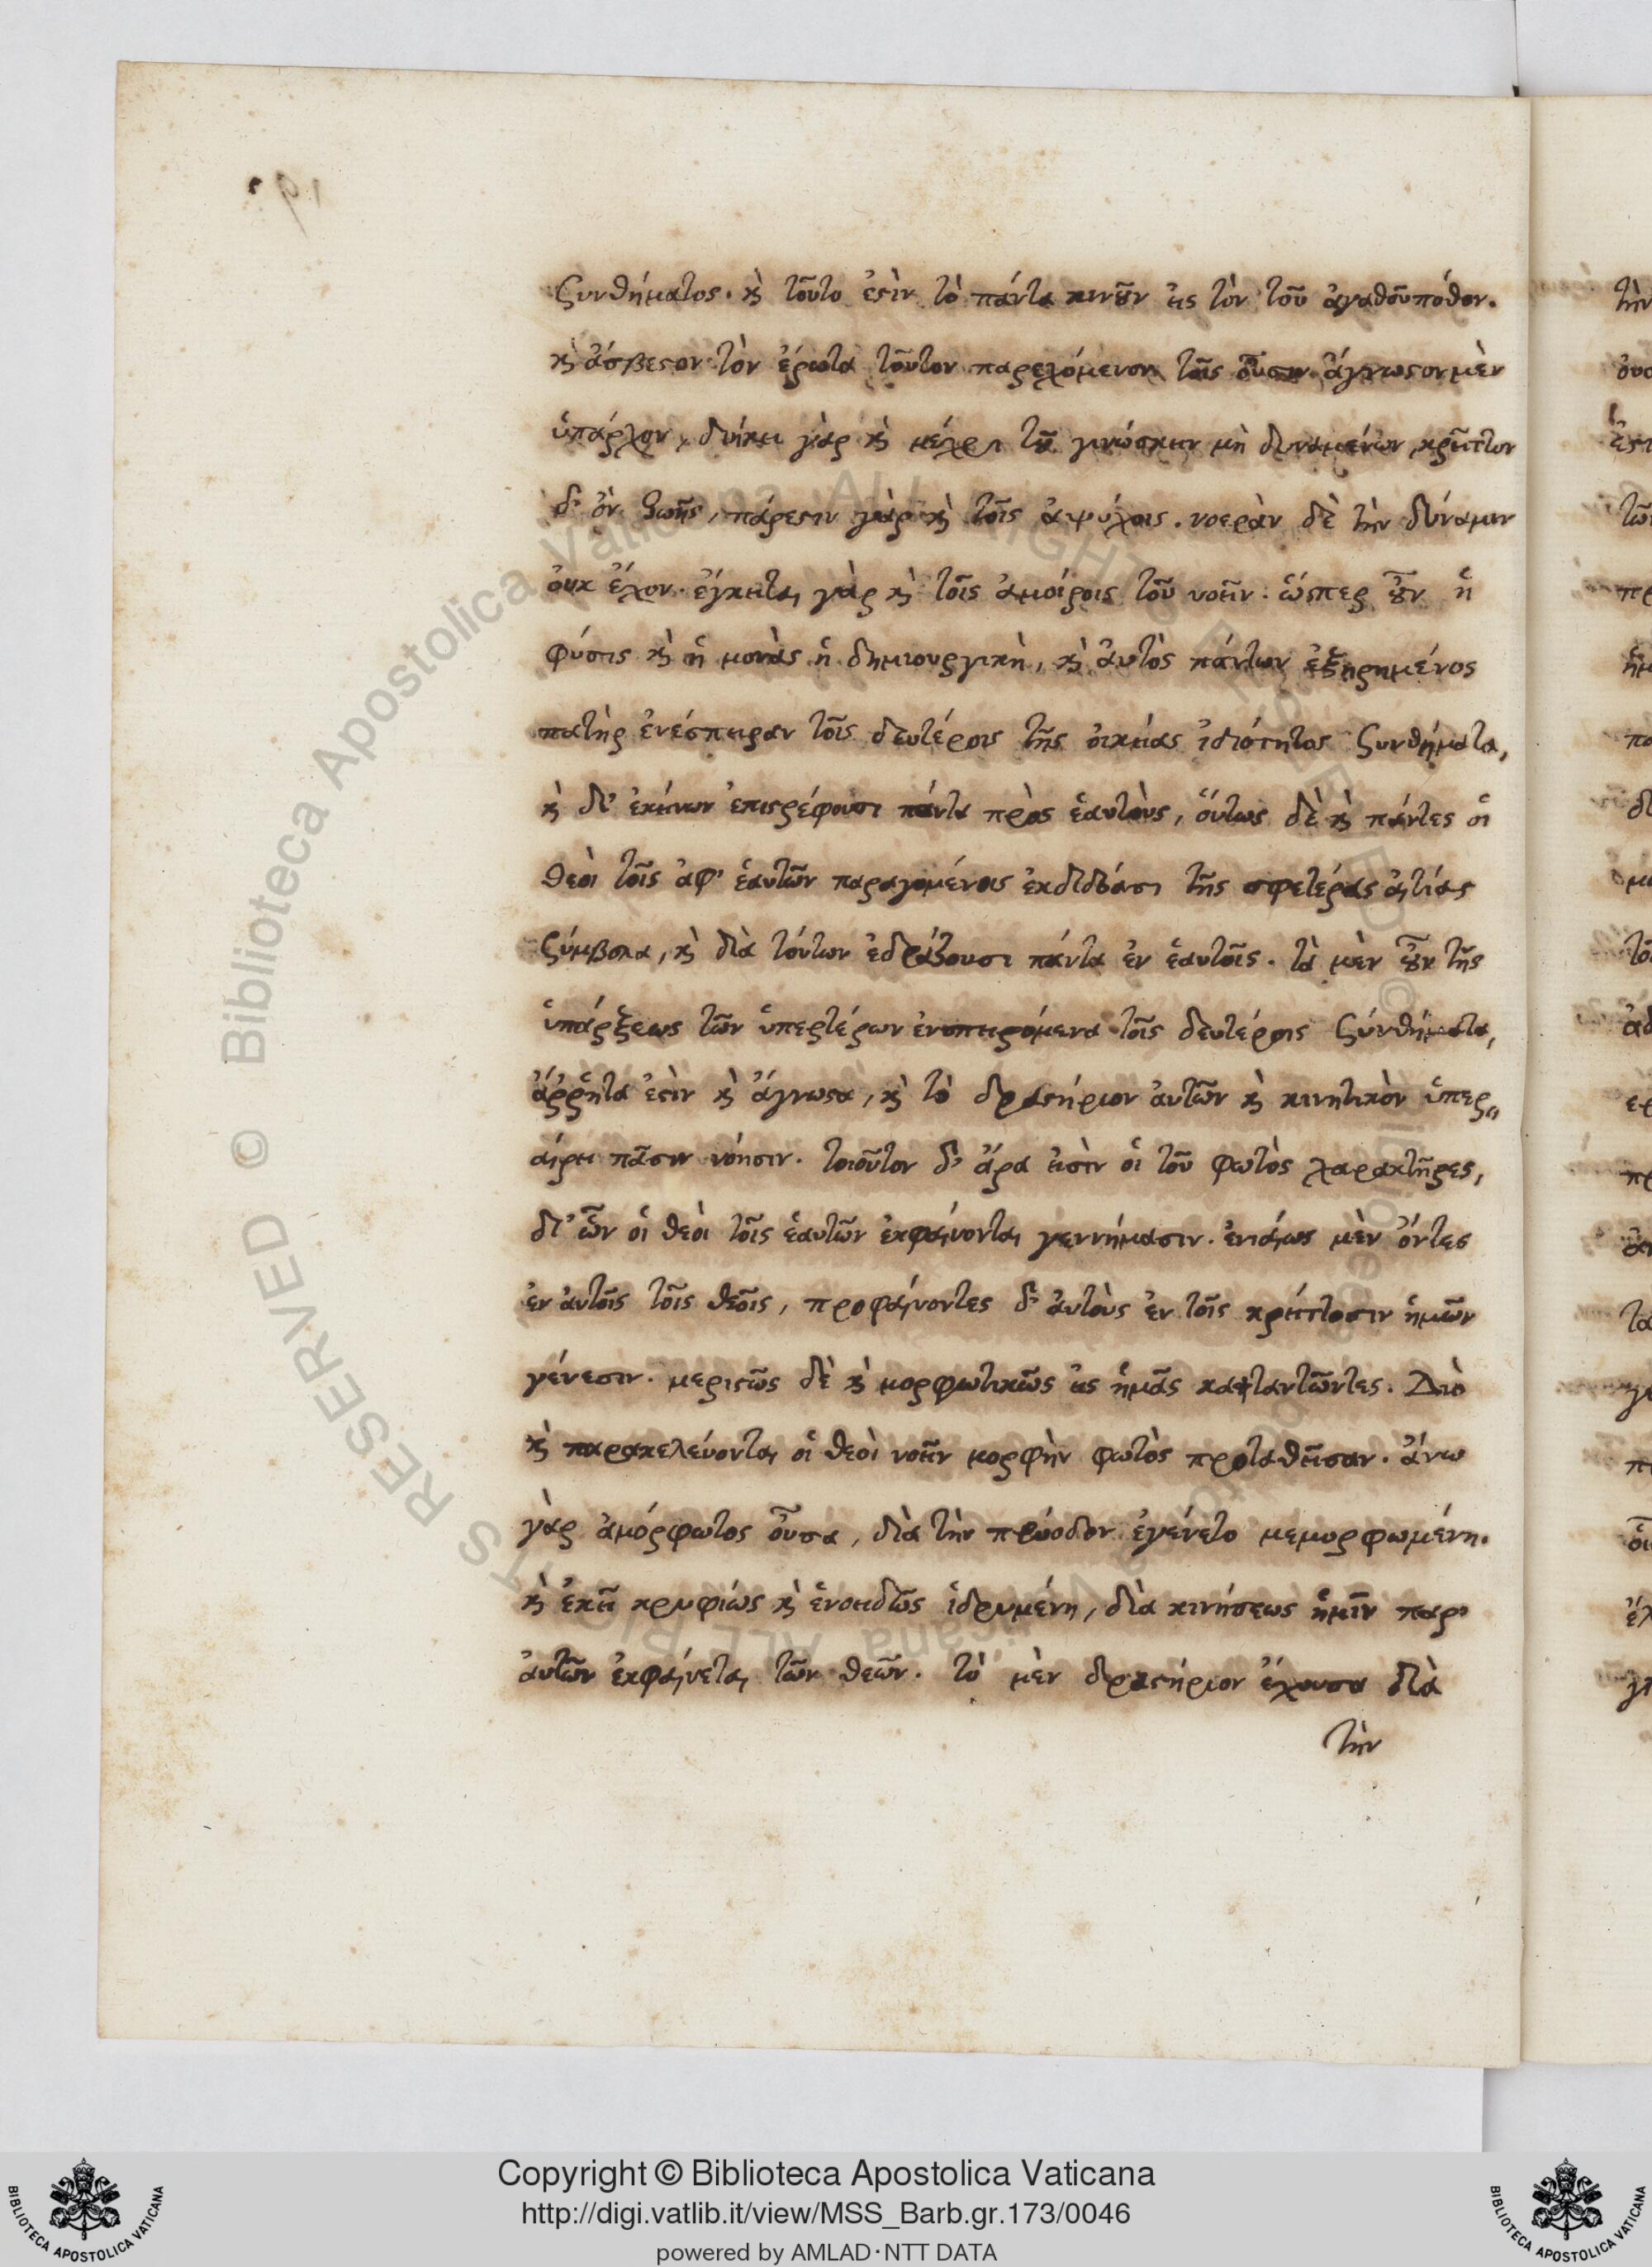 ϛυνθήματος. κὶ τοῦτο ἐϛὶν τὸ πάντα κινοῦν εἰς τὸν τοῦ ἀγαθοῦ πόθον.
κὶ ἄσβεϛον τὸν ἔρωτα τοῦτον παρεχόμενον τοῖς οὖσιν. ἄγνωϛον μὲν
ὑπάρχον, διήκει γὰρ κὶ μέχρι τῶν γινώσκειν μὴ δυναμένων, κρεῖττον
δ' ὂν ζωῆς, πάρεϛιν γὰρ κὶ τοῖς ἀψύχοις. νοερὰν δὲ τὴν δύναμιν
οὐκ ἔχον. ἔγκειται γὰρ κὶ τοῖς ἀμοίροις τοῦ νοεῖν. ὥσπερ οὖν ἡ
φύσις κὶ ἡ μονὰς ἡ δημιουργικὴ, κὶ ἀυτὸς πάντων ἐξῃρημένος
πατὴρ ἐνέσπειραν τοῖς δευτέροις τῆς οἰκείας ἰδιότητος ϛυνθήματα,
κὶ δι' ἐκείνων ἐπιϛρέφουσι πάντα πρὸς ἑαυτοὺς, ὅυτως δὲ κὶ πάντες οἱ
θεοὶ τοῖς ἀφ' ἑαυτῶν παραγομένοις ἐκδιδόασι τῆς σφετέρας ἀιτίας
ϛύμβολα, κὶ διὰ τούτων ἑδράζουσι πάντα ἐν ἑαυτοῖς. τὰ μὲν οὖν τῆς
ὑπάρξεως τῶν ὑπερτέρων ἐνσπειρόμενα τοῖς δευτέροις ϛύνθήματα,
ἄῤῥητα ἐϛὶν κὶ ἄγνωϛα, κὶ τὸ δραϛήριον ἀυτῶν κὶ κινητικὸν ὑπερ,,
αίρει πᾶσιν νόησιν. τοιοῦτον δ' ἄρα εἰσὶν οἱ τοῦ φωτὸς χαρακτῆρες,
δι' ὧν οἱ θεοὶ τοῖς ἑαυτῶν ἐκφαίνονται γεννήμασιν. ἑνιαίως μὲν ὄντες
ἐν ἀυτοῖς τοῖς θεοῖς, προφαίνοντες δ' ἀυτοὺς ἐν τοῖς κρείττοσιν ἡμῶν
γένεσιν. μεριϛῶς δὲ κὶ μορφωτικῶς εἰς ἡμᾶς καταντῶντες. Διὸ
κὶ παρακελεύονται οἱ θεοὶ νοεῖν μορφὴν φωτὸς προταθεῖσαν. ἄνω
γὰρ ἀμόρφωτος οὖσα, διὰ τὴν πρόοδον ἐγένετο μεμορφωμένη.
κὶ ἐκεῖ κρυφίως κὶ ἑνοειδῶς ἱδρυμένη, διὰ κινήσεως ἡμῖν παρ'
ἀυτῶν ἐκφαίνεται τῶν θεῶν. τὸ μὲν δραϛήριον ἔχουσα διὰ
τὴν
Copyright © Biblioteca Apostolica Vaticana
http://digi.vatlib.it/view/MSS_Barb.gr.173/0046
powered by AMLAD·NTT DATA